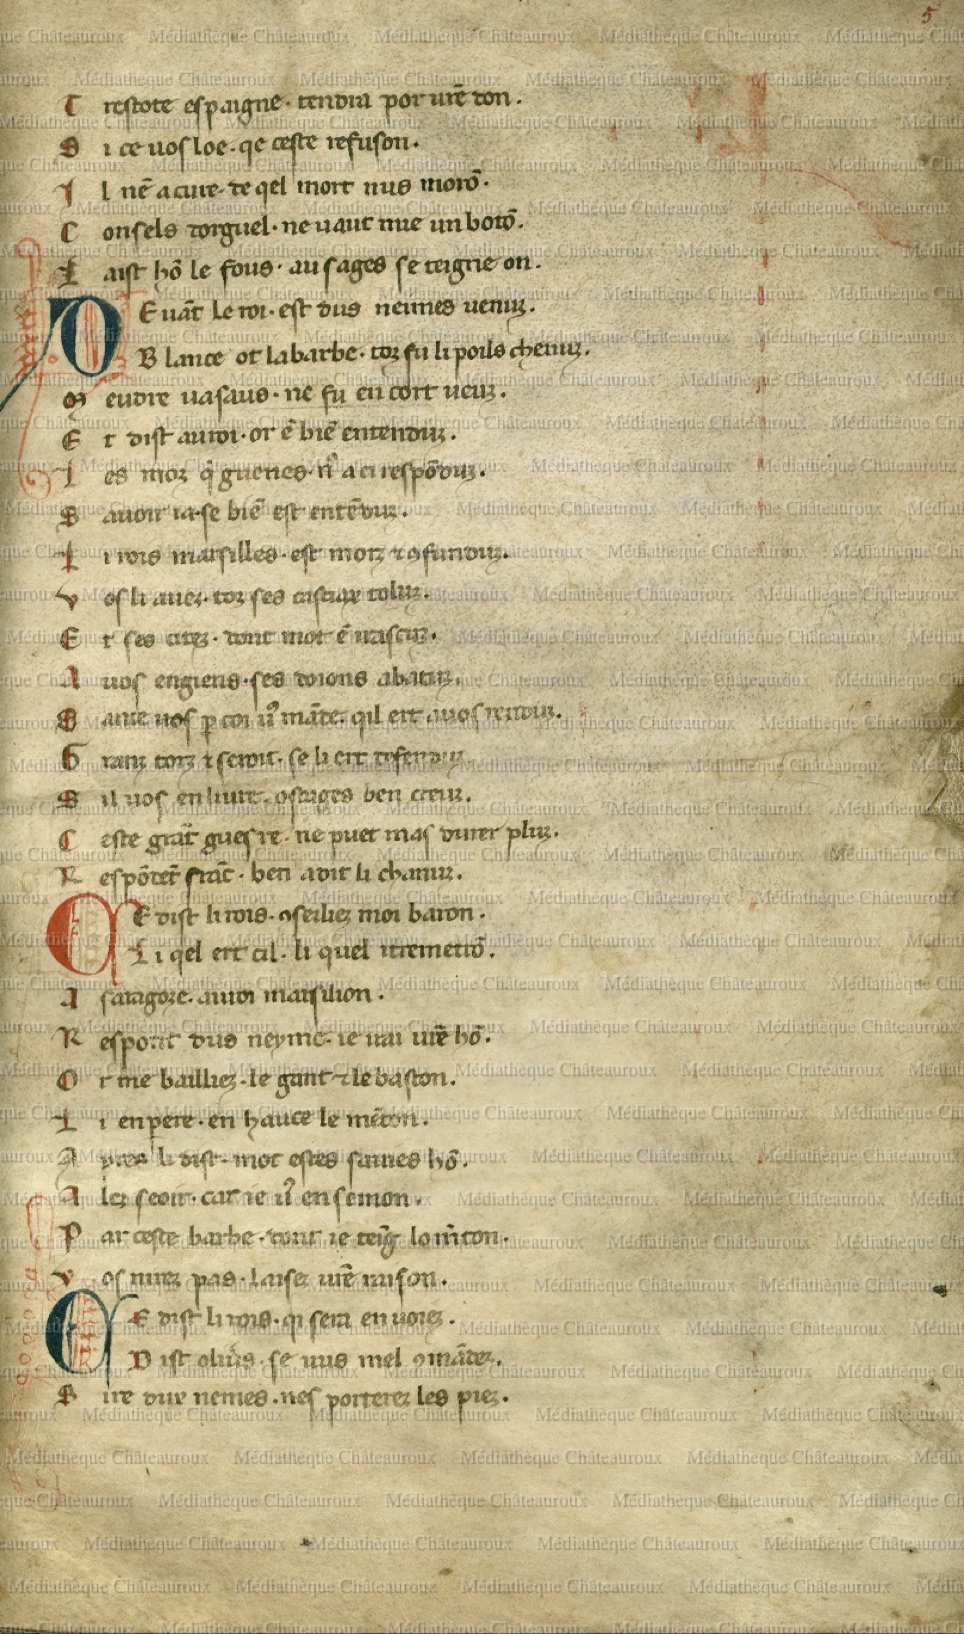 5
T restote espaigne · tendra por urē don .
S i ce uos loe · qe ceste refuson .
I l nē a cure · de qel mort nus morō .
C onsels dorguel · ne uaut mie un botō .
L aist hō le fous · au sages se teigne on .
D E uāt le roi · est dus neimes uenuz .
B lance ot la barbe · toz fu li poils chenuz .
M eudre uasaus · ne fu en cort ueuz .
E t dist au roi · or ē biē entenduz .
L es moz q̄ guenes · n̄ a ci respōduz .
S auoir ia · se biē est entēduz .
L i rois marsilles · est morz ⁊ ꝯfunduz .
V os li auez · toz ses castiax toluz .
E t ses citez · dont mot ē uascuz .
A uos engiens · ses doions abatuz .
S aue uos ꝑ coi u̓ māde · qil ert a uos renduz .
G ranz torz ⁊ seroit · se li ert defenduz
S il uos en liure · ostages ben creuz .
C este grāt guesre · ne puet mas durer pluz .
R espōdēt frāc · ben a dit li chanuz .
C E dist li rois · ꝯseiliez moi baron .
L i qel ert cil · li quel itremetrō .
A saragoze · au roi marsilion .
R espont dus neymes · ie irai urē hō .
O r me bailliez · le gant ⁊ le baston .
L i enperere · en hauce le mēton .
A pres li dist · mot estes saiues hō .
A lez seoir · car ie u̓ en semon .
P ar ceste barbe · dont ie teīg lo mēton .
V os nirez pas · laisez urē raison .
C E dist li rois · qi sera en uoiez .
D ist oliuers · se uus mel ꝯmādez .
S ire dux nemes · nes porterez les piez .